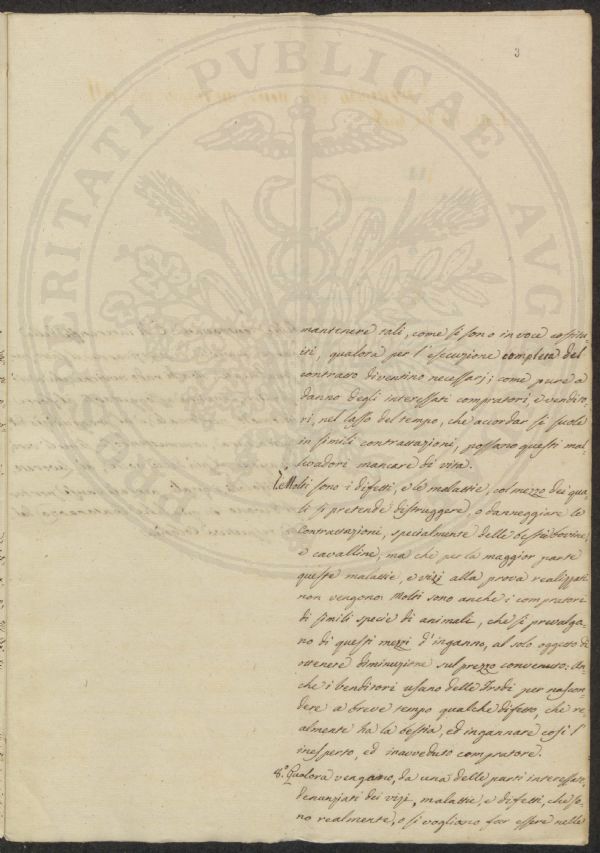 PROSPERITATI PVBLICAE AVG
3
mantenere tali, come si sono in voce costitu
iti, qualora per l'esecuzione completa del
contratto diventino necessarj; come pure a
danno degli interessati compratori, e vendito
ri, nel lasso del tempo, che accordar si suole
in simili contrattazioni, possano questi mal-
levadori mancare di vita.
7.° Molti sono i difetti, e le malattie, col mezzo dei qua
li si pretende distruggere, o danneggiare le
contrattazioni, specialmente delle bestie bovine,
e cavalline; ma che per la maggior parte
queste malattie, e vizj alla prova realizzati
non vengono: Molti sono anche i compratori
di simili specie di animali, che si prevalga-
no di questi mezzi d'inganno, al solo oggetto di
ottenere diminuzione sul prezzo convenuto: An-
che i venditori usano delle frodi per nascon-
dere a breve tempo qualche difetto, che re-
almente ha la bestia, ed ingannare così l'
inesperto, ed inavveduto compratore.
8.° Qualora vengano, da una delle parti interessate,
denunziati dei vizj, malattie, e difetti, che so-
no realmente, o si vogliono far essere nelle